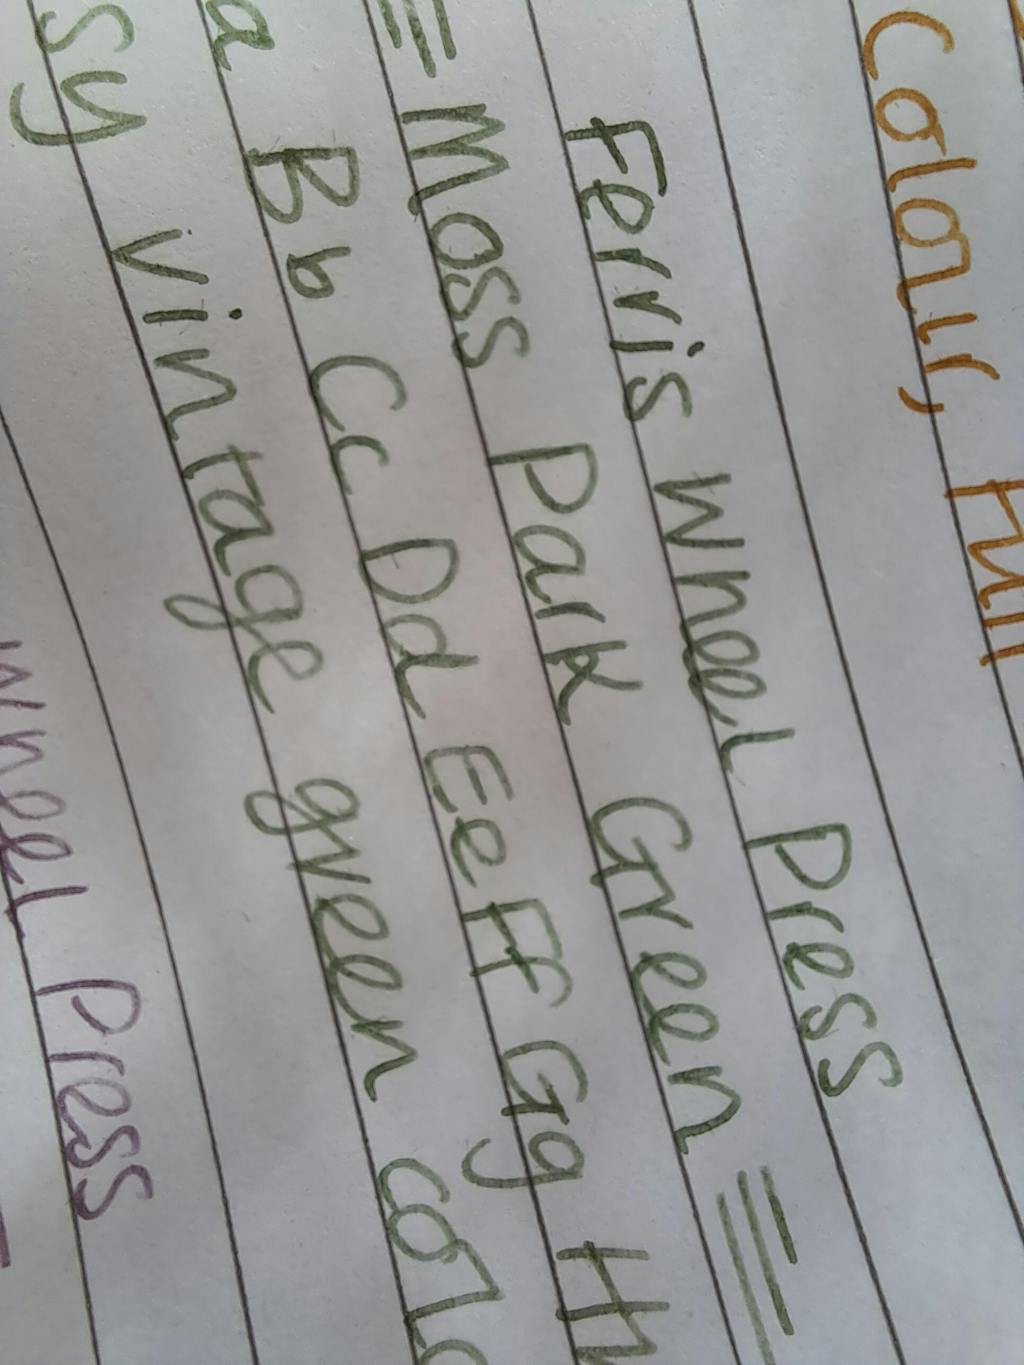 Colour, Full
Ferris Wheel Press
= Moss Park Green =
a Bb Cc Dd Ee Ff Gg Hh
sy vintage green colo
Wheel Press